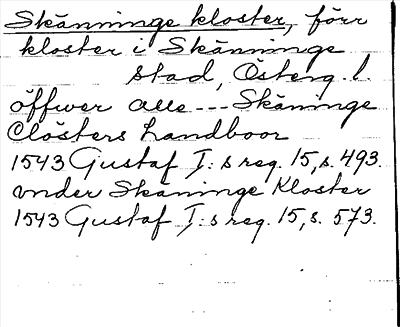 Skänninge kloster, förr
kloster i Skänninge
stad, Österg. l.
öffwer alle --- Skäninge
Clösters landboor
1543 Gustaf I:s reg. 15, s. 493.
vnder Skäninge Kloster
1543 Gustaf I:s reg. 15, s. 573.